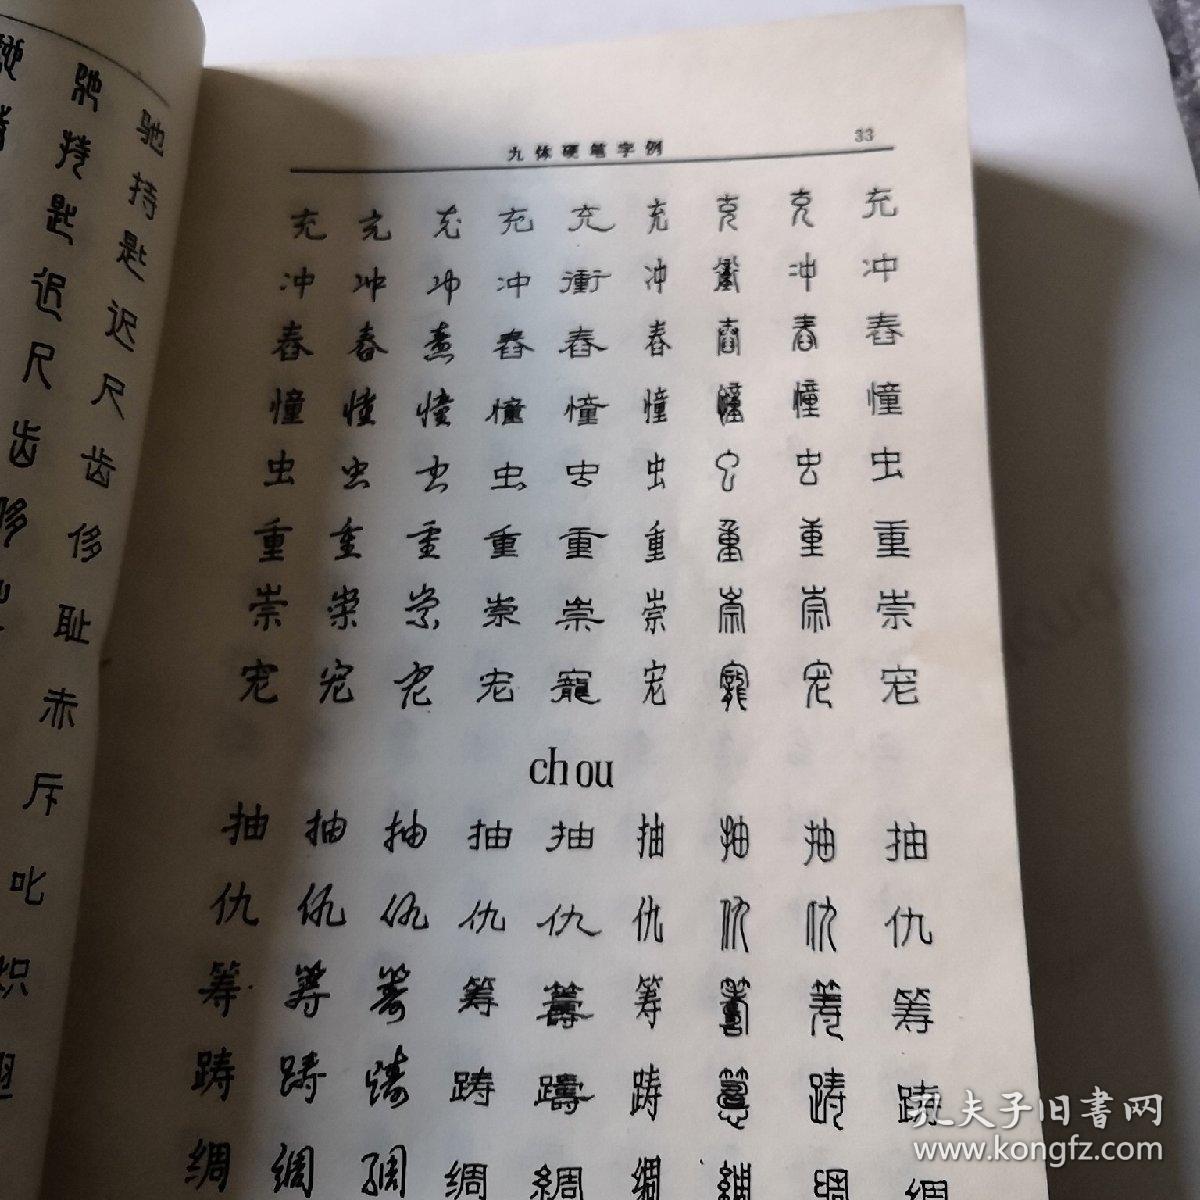 九体硬笔字例 33
充充充充充充充充充
冲冲冲冲衝冲衝冲冲
舂舂舂舂舂舂舂舂舂
憧憧憧憧憧憧憧憧憧
虫虫虫虫虫虫虫虫虫
重重重重重重重重重
崇崇崇崇崇崇崇崇崇
宠宠宠宠寵宠寵宠宠
chou
抽抽抽抽抽抽抽抽抽
仇仇仇仇仇仇仇仇仇
筹筹筹筹籌筹籌筹筹
踌踌踌踌躊踌踌踌
绸绸绸绸綢绸綢绸绸
驰持匙迟尺齿侈耻赤斥叱炽翅
驰持匙迟尺齿侈
孔夫子旧书网
www.kongfz.com